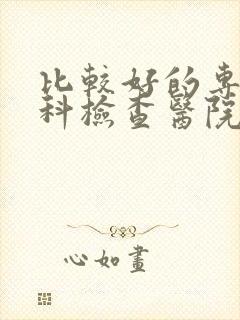 比較好的專
科檢查醫院
心如畫